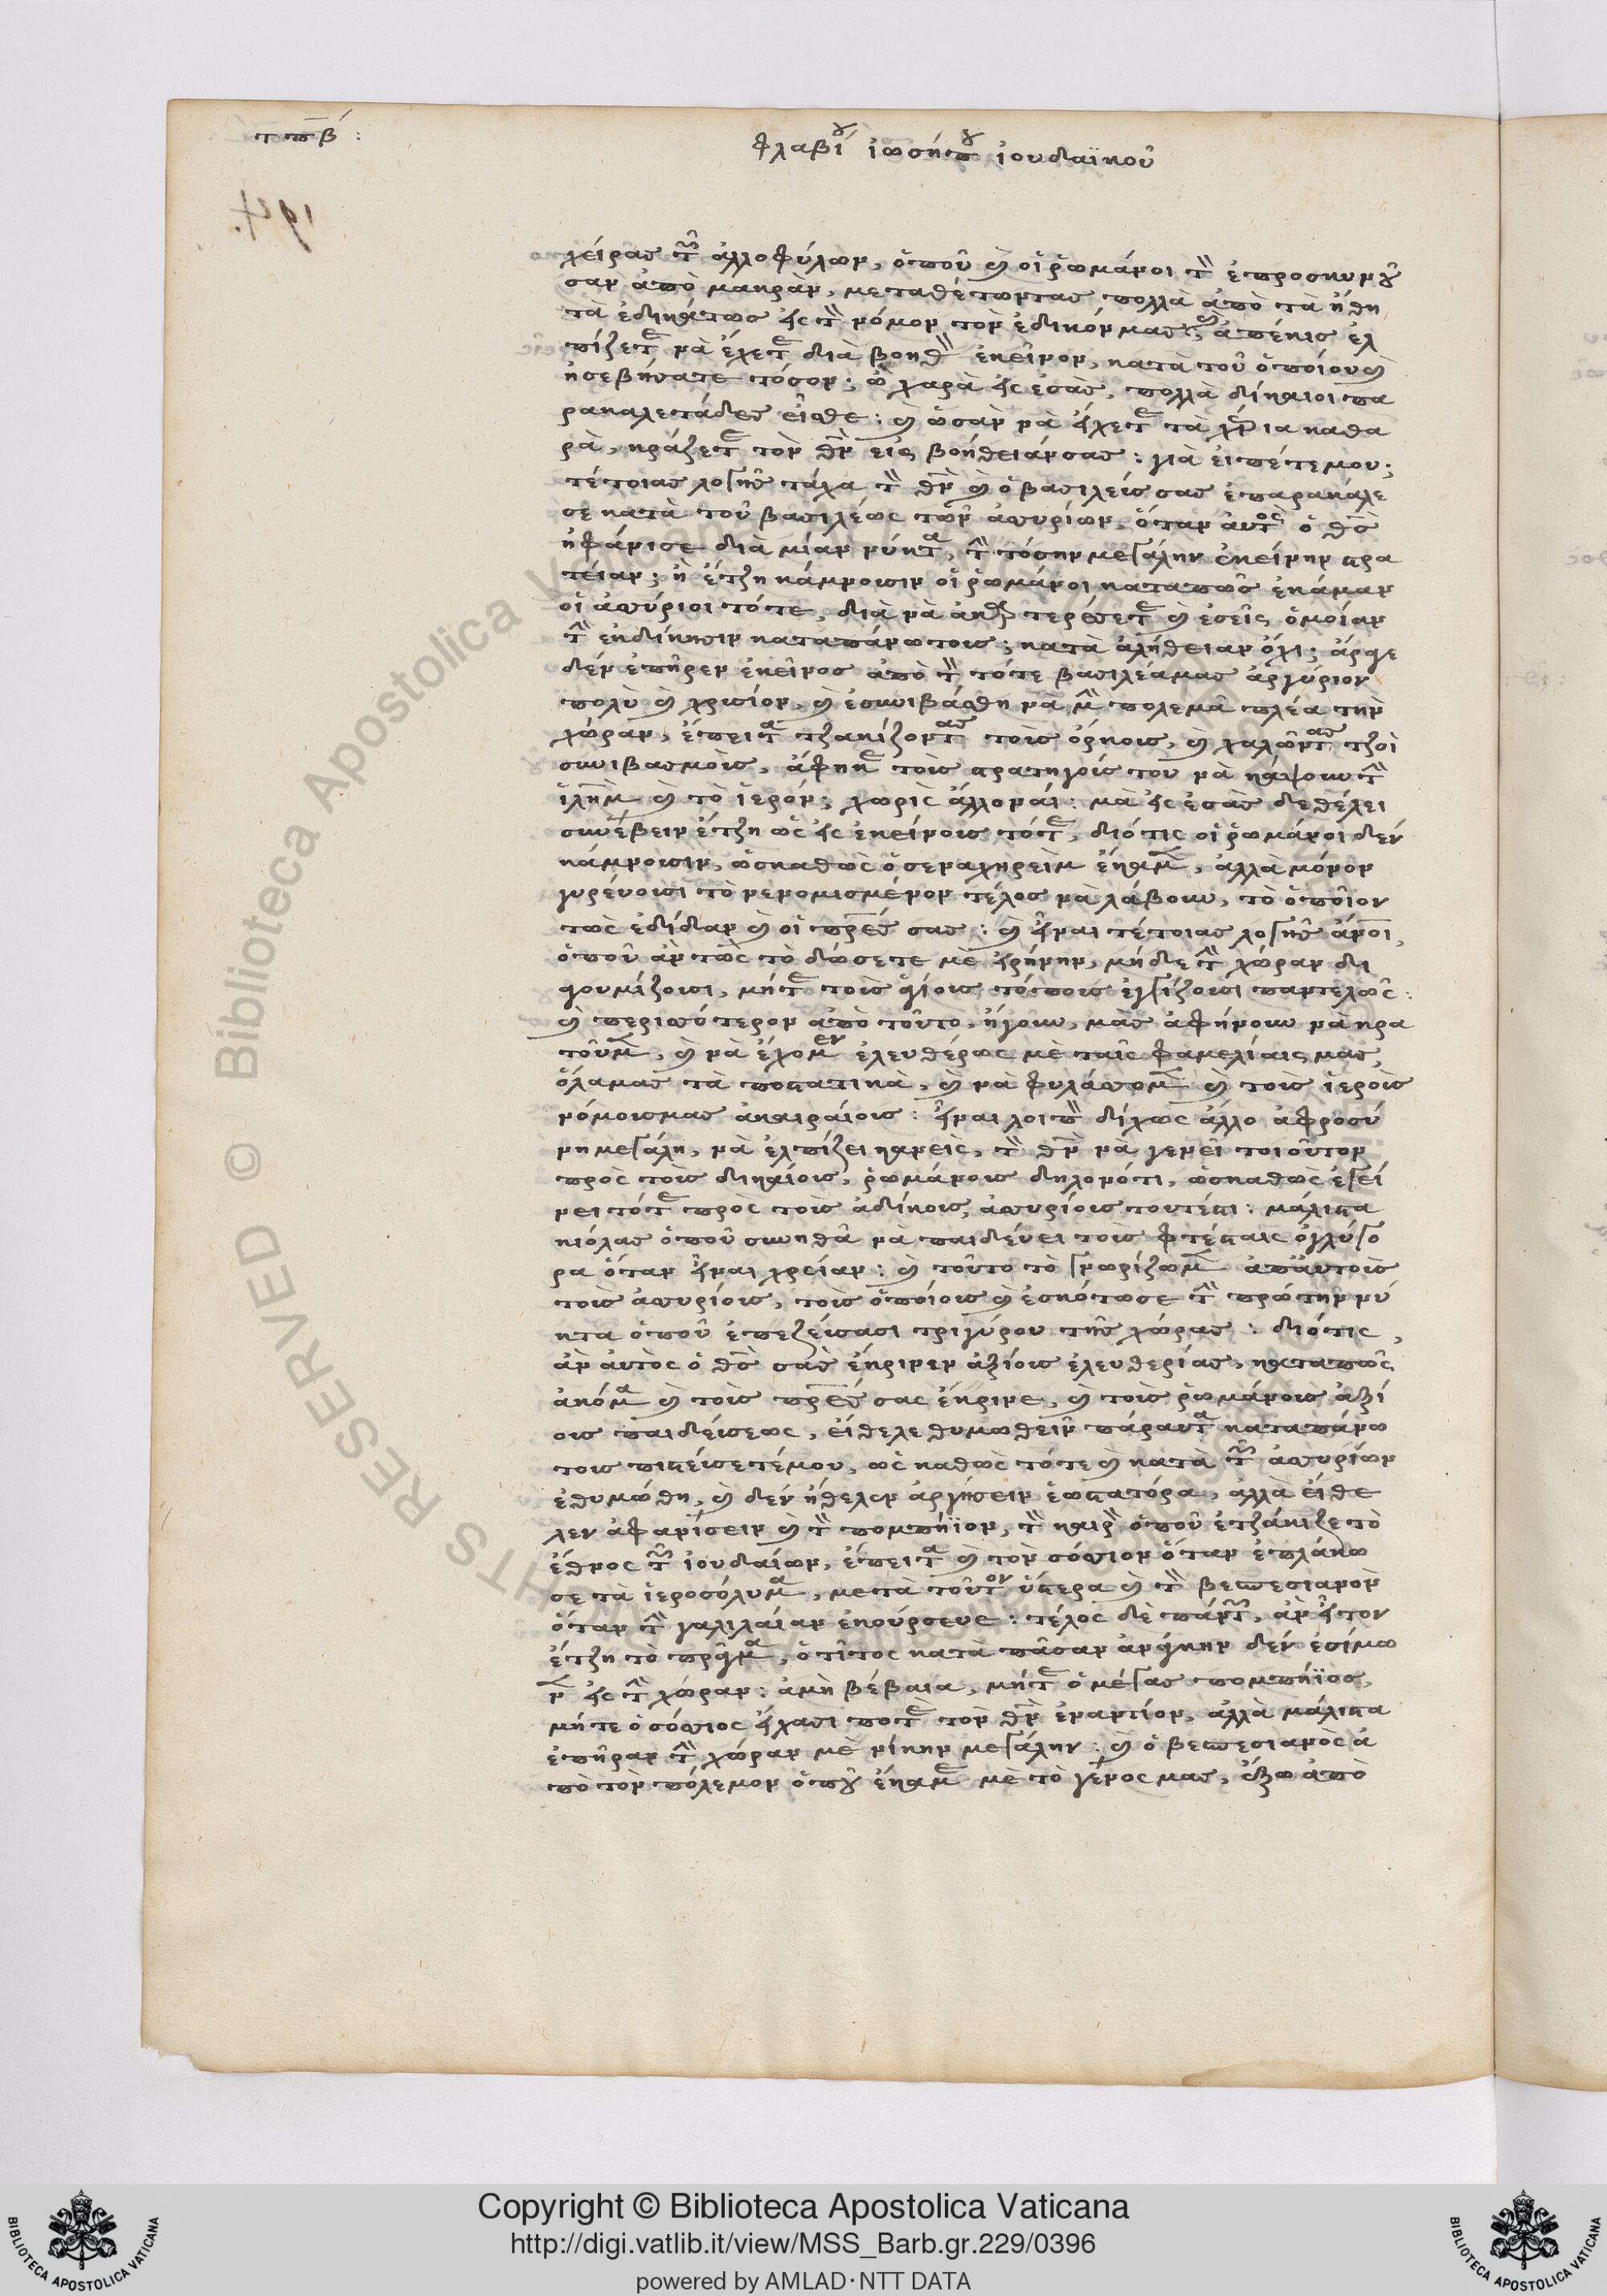 τπβ΄:
φλαβί(ου) ἰωσήπ(ου) ἰουδαϊκοῦ
194.
χείρας τῶν ἀλλοφύλων, ὁποῦ καὶ οἱ ῥωμάνοι τὸν ἐπροσκυνοῦ
σαν ἀπὸ μακρὰν, μεταθέτωντας πολλὰ ἀπὸ τὰ ἤθη
τὰ ἐδικάτως εἰς τὸν νόμον τὸν ἐδικόν μας; καὶ ἀπέκις ἐλ
πίζετε νὰ ἔχετε διὰ βοηθὸν ἐκεῖνον, κατὰ τοῦ ὁποίου καὶ
ἠσεβήσατε τόσον; ὢ χαρὰ εἰς ἐσᾶς, πολλὰ δίκαιοι πα
ρακαλετάδες εἶσθε: καὶ ὡσὰν νὰ εἴχετε τὰ χέρια καθα
ρὰ, κράζετε τὸν θν εἰς βοήθειάνσας: γιὰ εἰπέτεμου;
τέτοιας λογῆς τάχα τὸν θν καὶ ὁ βασιλεύς σας ἐπαρακάλε
σε κατὰ τοῦ βασιλέως τῶν ἀσσυρίων, ὅταν αὐτὸς ὁ θς
ἠφάνισε διὰ μίαν νύκτα, τὴν τόσην μεγάλην ἐκείνην στρα
τείαν; ἢ ἔτζη κάμνουσιν οἱ ῥωμάνοι καταπῶς ἐκάμαν
οἱ ἀσσύριοι τότε, διὰ νὰ ἀκαρτερέσετε καὶ ἐσεῖς ὁμοίαν
τὴν ἐκδίκησιν καταπάνωτους; κατὰ ἀλήθειαν ὄχι; ἆρσγε
δὲν ἐπῆρεν ἐκεῖνος ἀπὸ τὸν τότε βασιλέαμας ἀργύριον
πολὺ καὶ χρυσίον, καὶ ἐσυνιβάσθη νὰ μὴν πολεμᾶ πλέα τὴν
χώραν, ἔπειτα τζακίζοντας τοὺς ὅρκους, καὶ χαλῶντας τζοὶ
συνιβασμοὺς, ἄφηκε τοὺς στρατηγούς του νὰ κάψουν τὴν
ἱλημ καὶ τὸ ἱερόν; χωρὶς ἄλλο ναί: μὰ εἰς ἐσᾶς δεθέλει
συνέβειν ἔτζη ὡς εἰς ἐκείνους τότε, διότις οἱ ῥωμάνοι δὲν
κάμνουσιν, ὡσκαθὼς ὁ σεναχηρεὶμ ἔκαμεν, ἀλλὰ μόνον
γυρεύουσι τὸ νενομισμένον τέλος νὰ λάβουν, τὸ ὁποῖον
τῶς ἐδίδαν καὶ οἱ πρες σας: καὶ εἶναι τέτοιας λογῆς ἄνοι,
ὁποῦ ἂν τῶς τὸ δώσετε μὲ εἰρήνην, μήδε τὴν χώραν δι
αγουμίζουσι, μήτε τοὺς ἁγίους τόπους ἐγγίζουσι παντελῶς:
καὶ περισσότερον ἀπὸ τοῦτο, ἤγουν, μᾶς ἀφήνουν νὰ κρα
τοῦμεν, καὶ νὰ ἔχομεν ἐλευθέρως μὲ ταῖς φαμελίαις μας
ὅλαμας τὰ ποστατικὰ, καὶ νὰ φυλάσσομεν καὶ τοὺς ἱεροὺς
νόμουςμας ἀκαιραίους: εἶναι λοιπὸν δίχως ἄλλο ἀφροσύ
νη μεγάλη, νὰ ἐλπίζει κανεὶς, τὸν θν νὰ γενεῖ τοιοῦτον
πρὸς τοὺς δικαίους, ῥωμάνους δηλονότι, ὡσκαθὼς ἐγεί
νει τότε πρὸς τοὺς ἀδίκους, ἀσσυρίους τουτέστι: μάλιστα
κιόλας ὁποῦ συνηθᾶ νὰ παιδεύει τοὺς φτέσταις ὀγλύγο
ρα ὅταν εἶναι χρείαν: καὶ τοῦτο τὸ γνωρίζωμεν ἀπ᾽ αὐτοὺς
τοὺς ἀσσυρίους, τοὺς ὁποίους καὶ ἐσκότωσε τὴν πρώτην νύ
κτα ὁποῦ ἐπεζεύσασι τριγύρου τῆς χώρας: διότις,
ἂν αὐτὸς ὁ θς σᾶς ἔκρινεν ἀξίους ἐλευθερίας, καταπῶς
ἀκόμα καὶ τοὺς πρες σας ἔκρινε, καὶ τοὺς ῥωμάνους ἀξί
ους παιδεύσεως, εἴθελε θυμωθεῖν πάραυτα καταπάνω
τους πιστεύσετέμου, ὡς καθὼς τότε καὶ κατὰ τῶν ἀσσυρίων
ἐθυμώθη, καὶ δὲν ἤθελεν ἀργήσειν ἑωστατόρα, ἀλλὰ εἴθε
λεν ἀφανίσειν καὶ τὸν πομπήϊον, τὸν καιρὸν ὁποῦ ἐτζάκιζε τὸ
ἔθνος τῶν ἰουδαίων, ἔπειτα καὶ τὸν σόσσιον ὅταν ἐπλάκω
σε τὰ ἱεροσόλυμα, μετὰ τοῦτον ὕστερα καὶ τὸν βεσπεσιανὸν
ὅταν τὴν γαλιλαίαν ἐκούρσευε: τέλος δὲ πάντων, ἂν εἶτον
ἔτζη τὸ πρᾶγμα, ὁ τῖτος κατὰ πᾶσαν ἀνάγκην δὲν ἐσίμω
νεν εἰς τὴν χώραν: ἀμὴ βέβαια, μήτε ὁ μέγας πομπήϊος,
μήτε ὁ σόσσιος εἴχασι ποτὲ τὸν θν ἐναντίον, ἀλλὰ μάλιστα
ἐπῆραν τὴν χώραν μὲ νίκην μεγάλην: καὶ ὁ βεσπεσιανὸς ἀ
πὸ τὸν πόλεμον ὁποῦ ἔκαμε μὲ τὸ γένος μας, ἔξω ἀπὸ
Biblioteca Apostolica Vaticana
RIGHTS RESERVED © Biblioteca Apostolica Vaticana
Copyright © Biblioteca Apostolica Vaticana
http://digi.vatlib.it/view/MSS_Barb.gr.229/0396
powered by AMLAD·NTT DATA
BIBLIOTECA APOSTOLICA VATICANA
BIBLIOTECA APOSTOLICA VATICANA